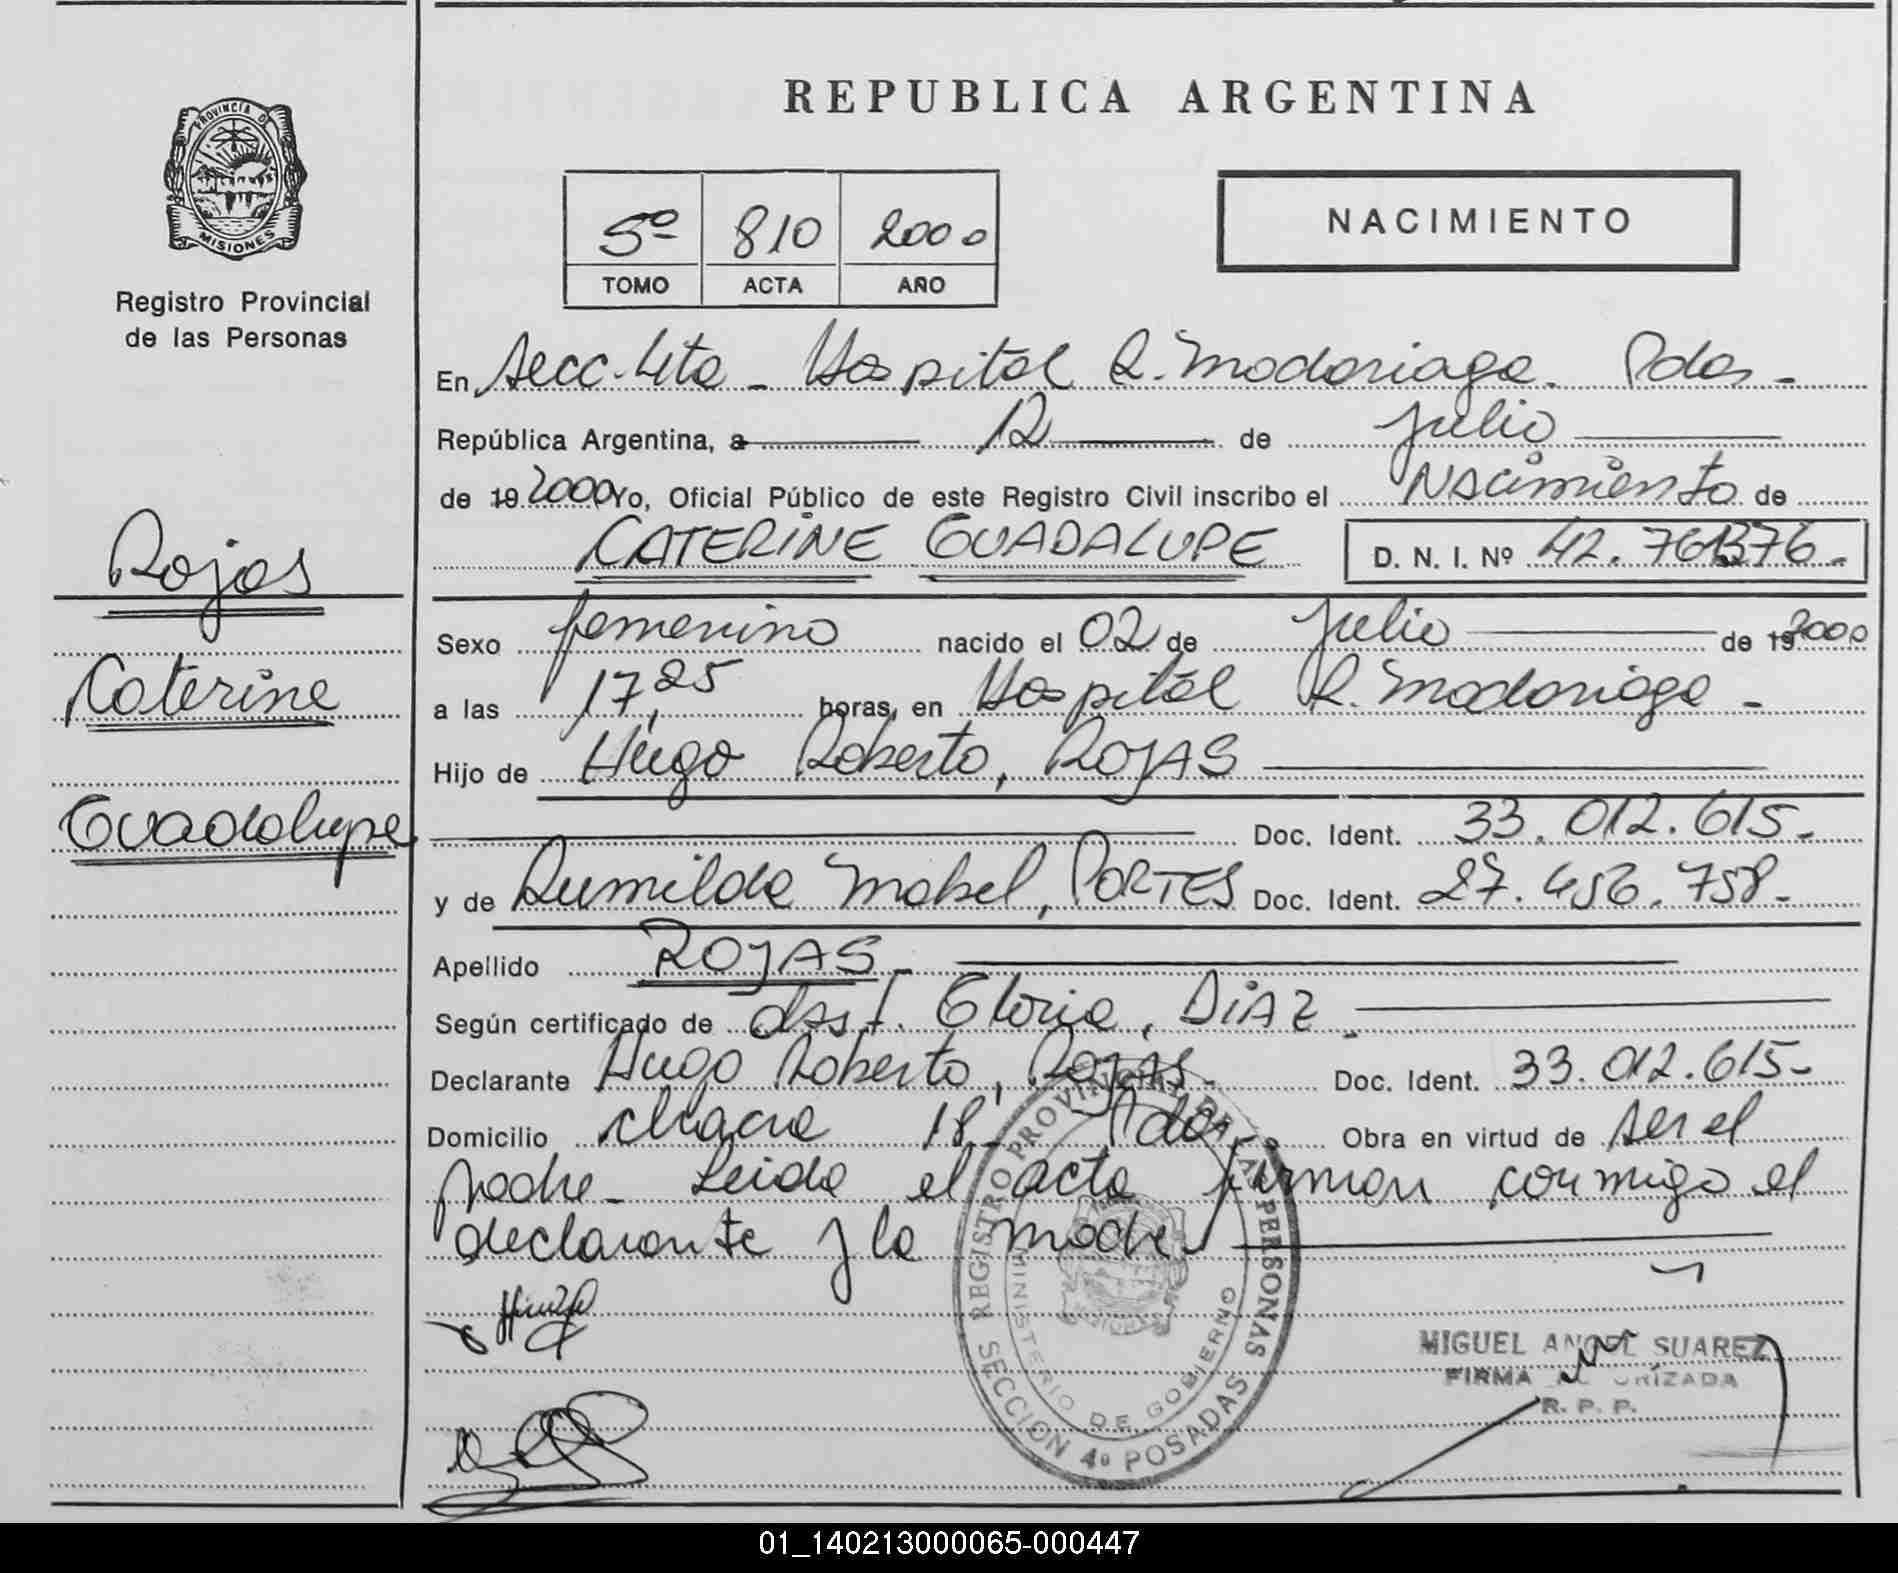 REPUBLICA ARGENTINA
PROVINCIA DE
MISIONES
Registro Provincial
de las Personas
5º 810 2000
TOMO ACTA AÑO
NACIMIENTO
En Secc. 4ta - Hospital R. Madariaga. Pdas -
República Argentina, a 12 de Julio
de 19 2000 Yo, Oficial Público de este Registro Civil inscribo el Nacimiento de
CATERINE GUADALUPE D. N. I. Nº
Rojas
Caterine
Guadalupe
Sexo femenino nacido el 02 de Julio de 19 2000
a las 17,25 horas, en Hospital R. Madariaga -
Hijo de Hugo Roberto, ROJAS
Doc. Ident. 33.012.615-
y de Mabel, PORTES Doc. Ident. 27.456.758-
Apellido ROJAS -
Según certificado de Gloria, DIAZ
Declarante Hugo Roberto, Rojas - Doc. Ident. 33.012.615-
Domicilio chacra 18 - Pdas, Obra en virtud de ser el
padre - Leida el acta firman conmigo el
declarante y la madre
REGISTRO PROVINCIAL DE LAS PERSONAS
MINISTERIO DE GOBIERNO
SECCION 4º POSADAS
MIGUEL ANGEL SUAREZ
FIRMA AUTORIZADA
R. P. P.
01_140213000065-000447